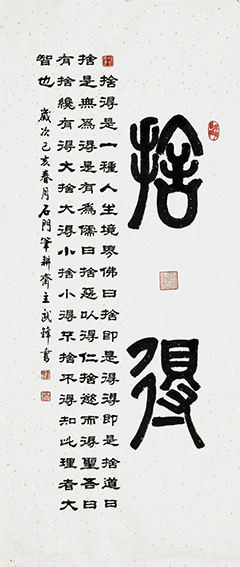 捨得
捨得是一種人生境界佛曰捨即是得得即是捨道曰
捨是無為得是有為儒曰捨惡以得仁捨慾而得聖吾曰
有捨纔有得大捨大得小捨小得不捨不得知此理者大
智也 歲次己亥春月石門筆耕齋主武鋒書